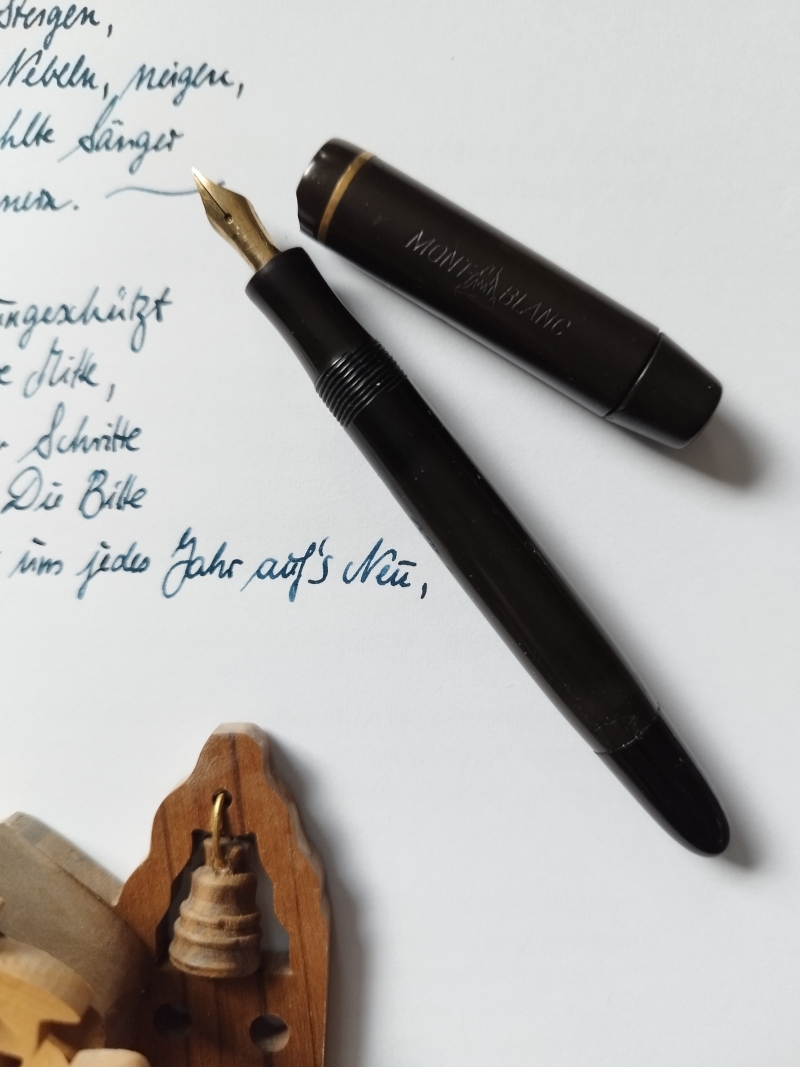 steigen,
Nebeln, neigen,
hlte Sänger
nern.
ungeschützt
e Mitte,
Schritte
Die Bitte
um jedes Jahr auf's Neu,
MONT BLANC